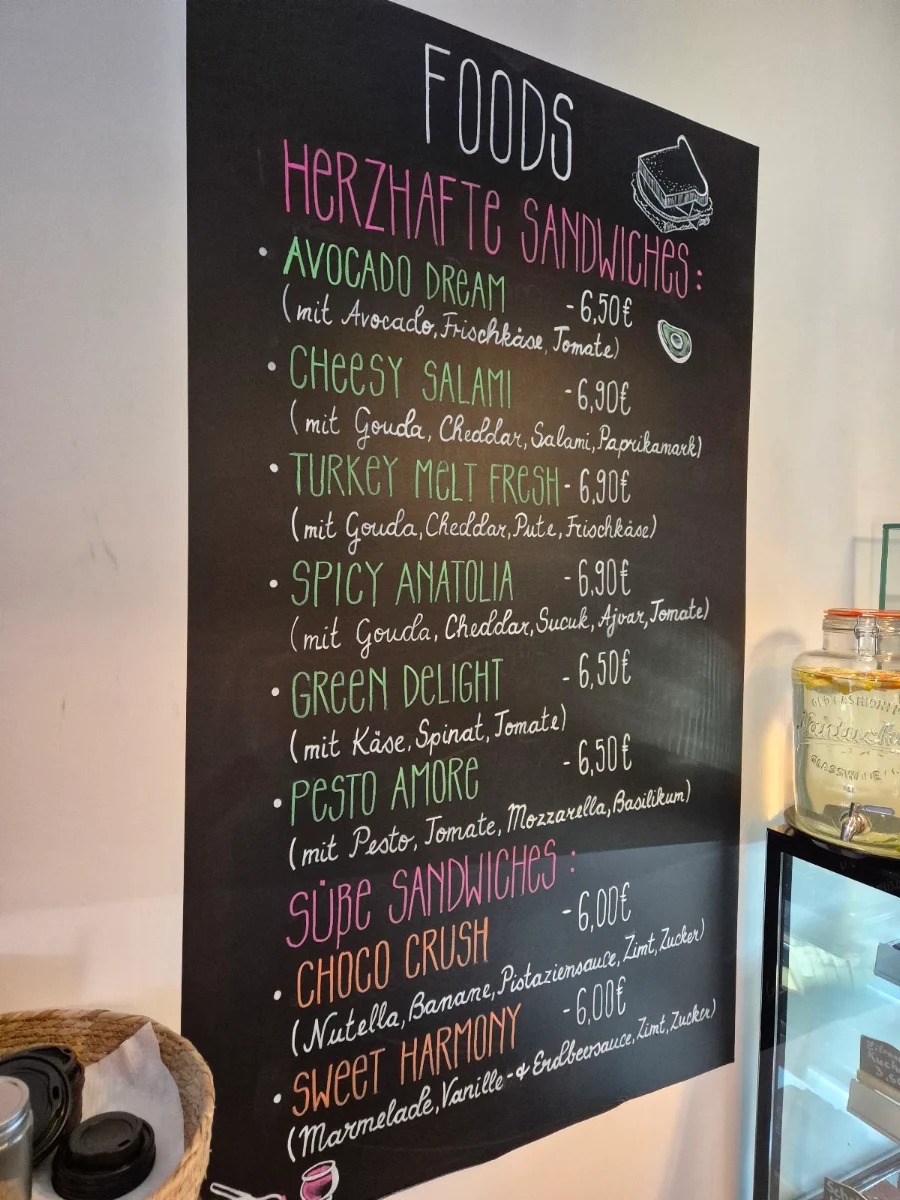 FOODS
HERZHAFTE SANDWICHES:
• AVOCADO DREAM - 6,50€
(mit Avocado, Frischkäse, Tomate)
• CHEESY SALAMI - 6,90€
(mit Gouda, Cheddar, Salami, Paprikamark)
• TURKEY MELT FRESH - 6,90€
(mit Gouda, Cheddar, Pute, Frischkäse)
• SPICY ANATOLIA - 6,90€
(mit Gouda, Cheddar, Sucuk, Ajvar, Tomate)
• GREEN DELIGHT - 6,50€
(mit Käse, Spinat, Tomate)
• PESTO AMORE - 6,50€
(mit Pesto, Tomate, Mozzarella, Basilikum)
SÜßE SANDWICHES:
• CHOCO CRUSH - 6,00€
(Nutella, Banane, Pistaziensauce, Zimt, Zucker)
• SWEET HARMONY - 6,00€
(Marmelade, Vanille- & Erdbeersauce, Zimt, Zucker)